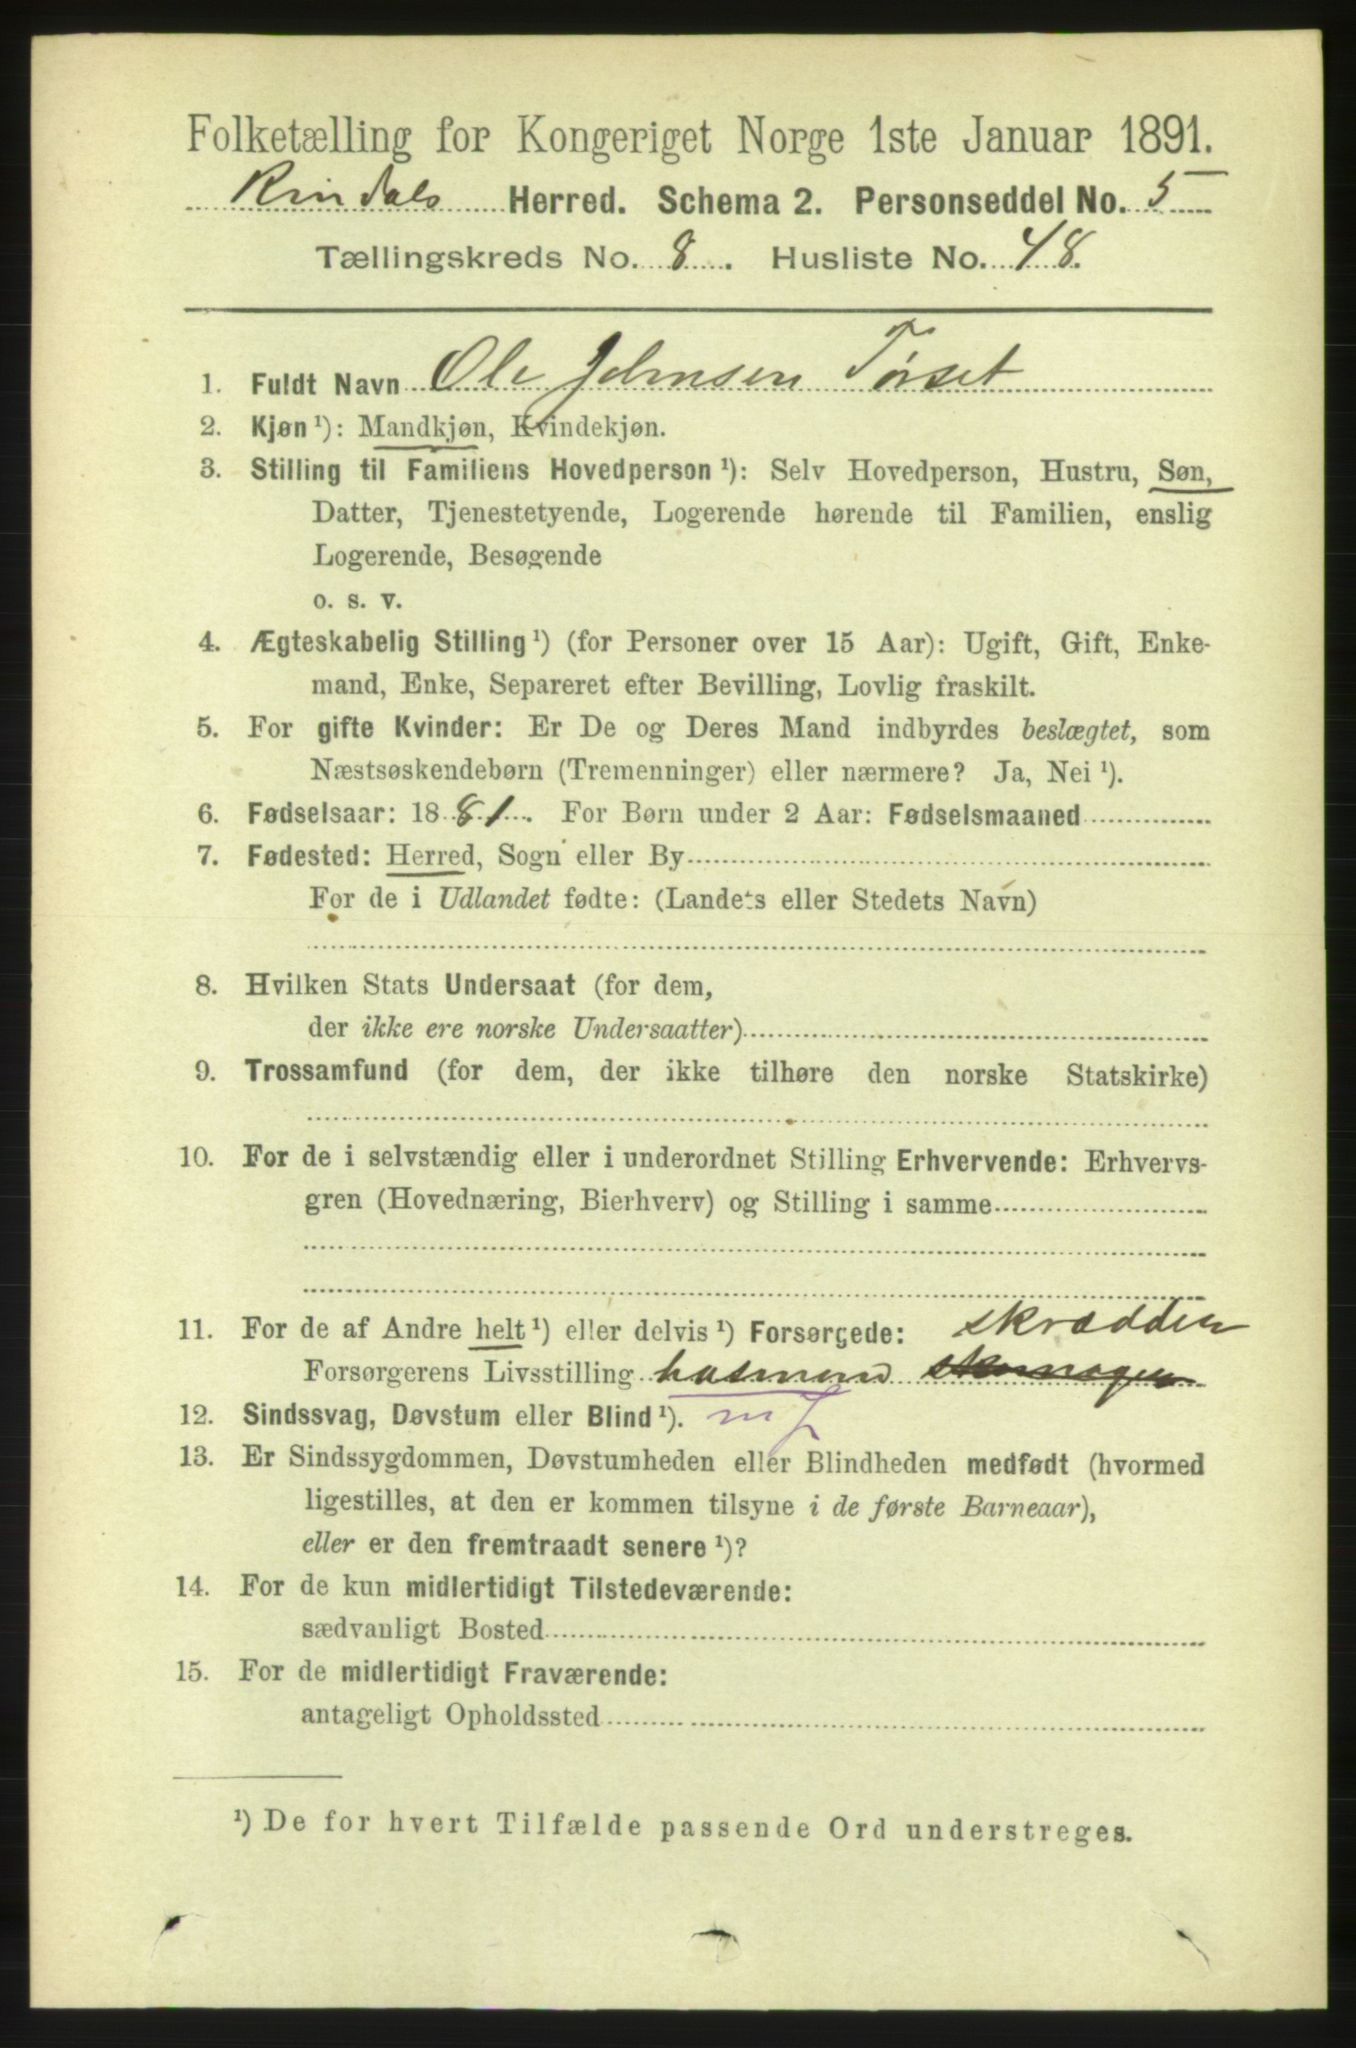 Folketælling for Kongeriget Norge 1ste Januar 1891.
Rindals Herred. Schema 2. Personseddel No. 5
Tællingskreds No. 8. Husliste No. 48.
1. Fuldt Navn Ole Johnsen Tørset
2. Kjøn ¹): Mandkjøn, Kvindekjøn.
3. Stilling til Familiens Hovedperson ¹): Selv Hovedperson, Hustru, Søn,
Datter, Tjenestetyende, Logerende hørende til Familien, enslig
Logerende, Besøgende
o. s. v.
4. Ægteskabelig Stilling ¹) (for Personer over 15 Aar): Ugift, Gift, Enke-
mand, Enke, Separeret efter Bevilling, Lovlig fraskilt.
5. For gifte Kvinder: Er De og Deres Mand indbyrdes beslægtet, som
Næstsøskendebørn (Tremenninger) eller nærmere? Ja, Nei ¹).
6. Fødselsaar: 1881. For Børn under 2 Aar: Fødselsmaaned
7. Fødested: Herred, Sogn eller By
For de i Udlandet fødte: (Landets eller Stedets Navn)
8. Hvilken Stats Undersaat (for dem,
der ikke ere norske Undersaatter)
9. Trossamfund (for dem, der ikke tilhøre den norske Statskirke)
10. For de i selvstændig eller i underordnet Stilling Erhvervende: Erhvervs-
gren (Hovednæring, Bierhverv) og Stilling i samme
11. For de af Andre helt ¹) eller delvis ¹) Forsørgede: skrædder
Forsørgerens Livsstilling husmand skomager
12. Sindssvag, Døvstum eller Blind ¹).
13. Er Sindssygdommen, Døvstumheden eller Blindheden medfødt (hvormed
ligestilles, at den er kommen tilsyne i de første Barneaar),
eller er den fremtraadt senere ¹)?
14. For de kun midlertidigt Tilstedeværende:
sædvanligt Bosted
15. For de midlertidigt Fraværende:
antageligt Opholdssted
¹) De for hvert Tilfælde passende Ord understreges.